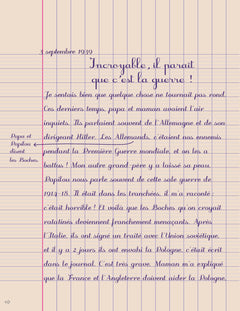 3 septembre 1939
Incroyable, il paraît
que c'est la guerre !
Je sentais bien que quelque chose ne tournait pas rond.
Ces derniers temps, papa et maman avaient l'air
inquiets. Ils parlaient souvent de l'Allemagne et de son
dirigeant Hitler. Les Allemands, c'étaient nos ennemis
Papa et
Papilou
disent
les Boches.
pendant la Première Guerre mondiale, et on les a
battus ! Mon autre grand-père y a laissé sa peau.
Papilou nous parle souvent de cette sale guerre de
1914-18. Il était dans les tranchées, il m'a raconté :
c'était horrible ! Et voilà que les Boches qu'on croyait
ratatinés deviennent franchement menaçants. Après
l'Italie, ils ont signé un traité avec l'Union soviétique,
et il y a 2 jours ils ont envahi la Pologne, c'était écrit
dans le journal. C'est très grave. Maman m'a expliqué
que la France et l'Angleterre doivent aider la Pologne,